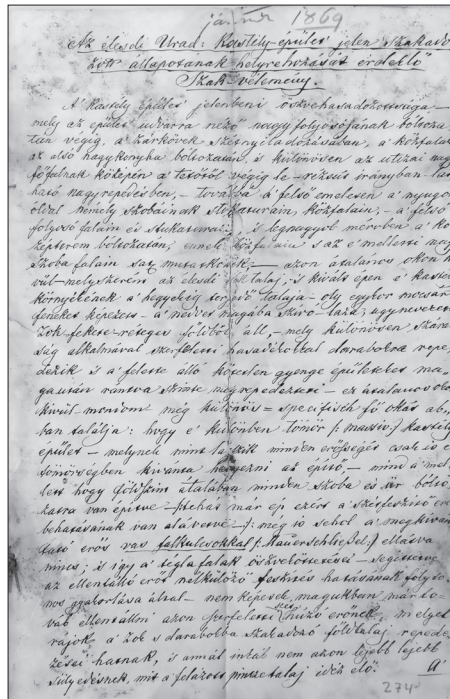 január 1869
Az élesdi Urad: Kastély-épület jelen szakado-
zott állapotának helyrehozását érdeklő
Szak-vélemény.
A' kastély épület jelenbeni öszvehasadozottsága —
mely az épület udvarra néző nagy folyosójának boltoza-
tán végig, a' zárkövek szétnyiladozásában, a' közfalak
az alsó nagykonyha boltozatán, is különösen az utczai nagy
főfalnak közepén a' tetőtől végig le – rézsuis irányban lát-
ható nagy repedésben, – továbbá a' felső emeleten a' nyugoti
oldal némely szobáinak Stukaturáin, közfalain; – a' felső
folyosó falain és stukaturáin; is legnagyob mérvben a' kö-
zépterem boltozatán, ennek közfalain s az e' melletti nagy
szoba falain sat mutatkozik, – azon átalános okon kí-
vül – melyszerént az élesdi talaj, is kivált épen e' kastély
környékének a' hegyekig terjedő talaja – oly egykor mocsár
feneket képezett – a' nedvet magába szívó laza, ugynevezett
zók fekete-réteges földből áll, – mely különösen száraz-
ság alkalmával szerfeletti hasadékokkal darabokra repe-
dezik is a' felette álló köretlen gyenge épületeket ma-
ga után rántva szinte megrepedezteti – ez átalános okon
kívül mondom még különös = specifisch fő okát ab-
ban találja: hogy e' különben tömör /: massiv :/ kastély
épület – melynek mint látszik minden erősségét csak is e
tömörségben kivánta helyezni az építő, – mind a' mel-
lett hogy földszint átalában minden szoba és tér bolto-
zatra van építve – /: tehát már ép ezért a' szétfeszítő erő
behatásának van alávetve :/ még is sehol a' megkíván-
tató erős vas falkulcsokkal /: Mauerschliessel :/ ellátva
nincs; is így a' tégla falak öszvelöttetései – segittetve
az ellentálló erőt nélkülöző feszítés hatásának folyto-
nos gyakorlása által – nem képesek magukban már to-
váb ellentállni azon szerfeletti húzó erőnek, melyet
rájok, a' zók s darabokba szakadozó földtalaj repede-
zései hatnak, is annál inkáb nem azon lejebb lejebb
sülyedésnek, mit a felázott puha talaj idéz elő. A'
274